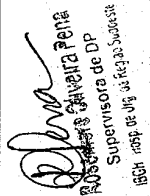 Silveira Pena
Supervisora de DP
IBGH Hosp. de Urg. da Região Sudoeste